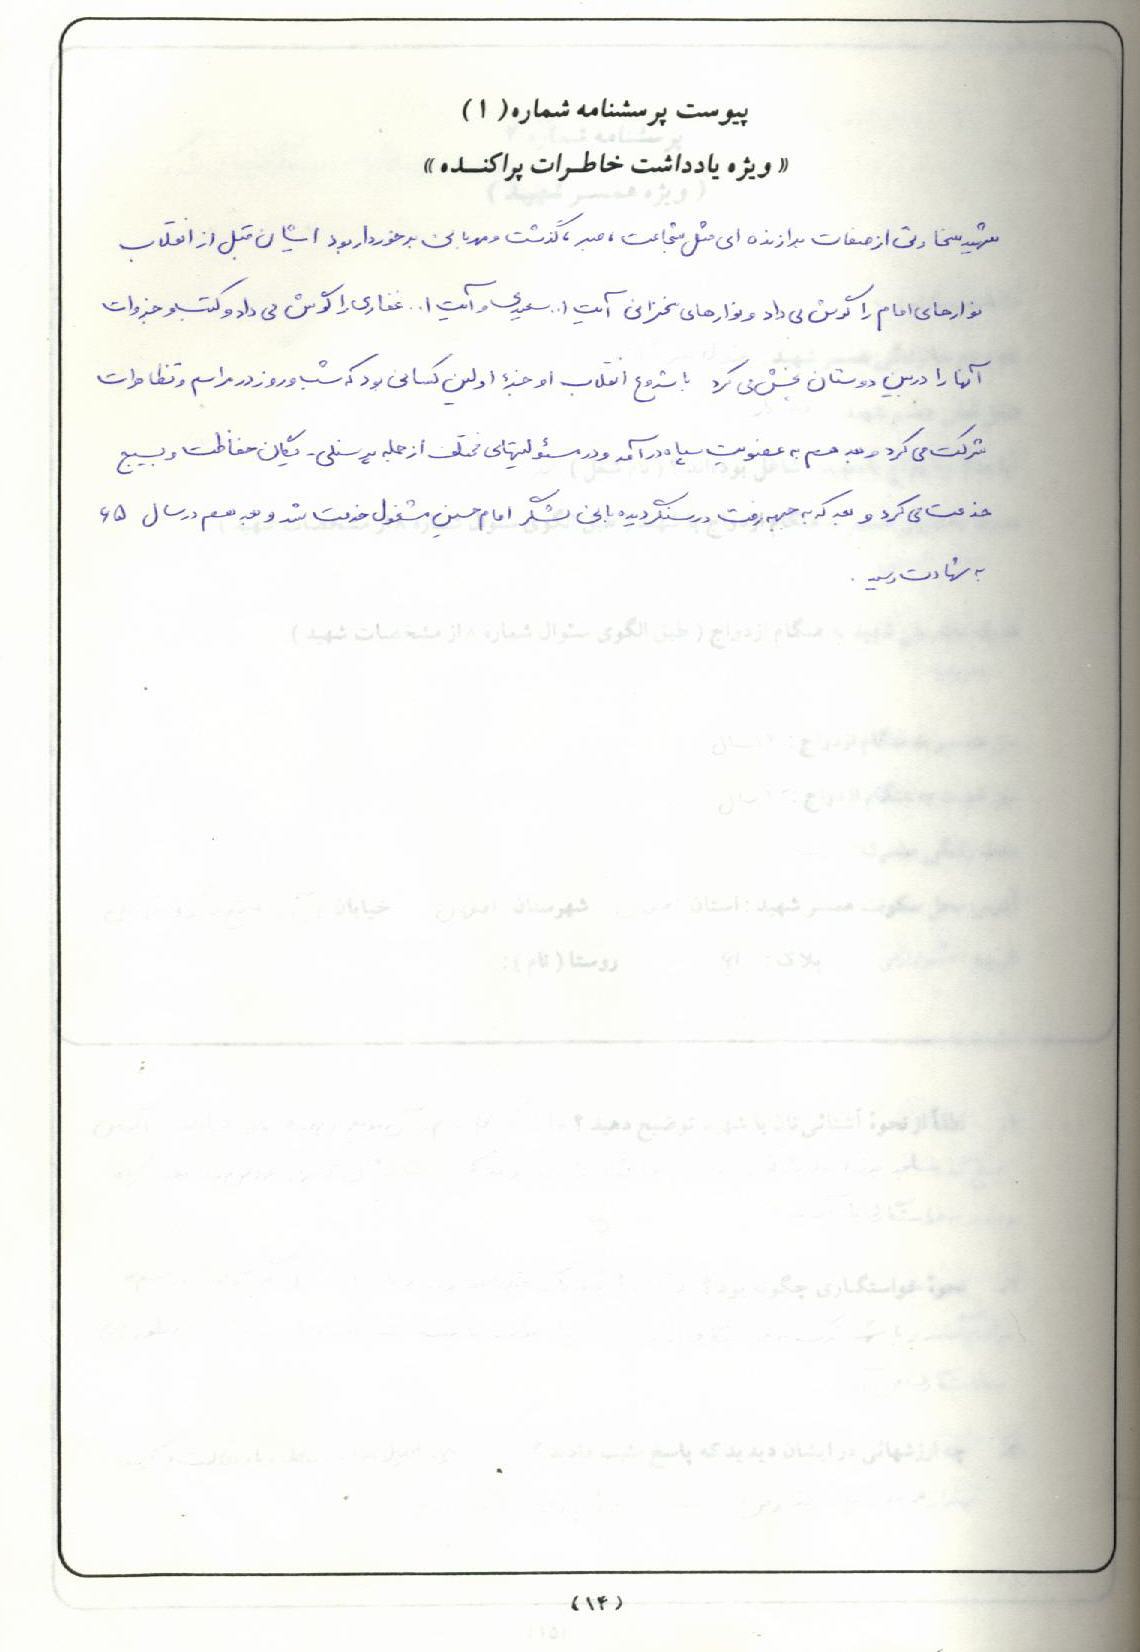 پیوست پرسشنامه شماره (۱)
« ویژه یادداشت خاطرات پراکنده »
شهید سخاوتی از صفات برازنده ای مثل شجاعت ، صبر ، گذشت و مهربانی برخوردار بود ایشان قبل از انقلاب
نوارهای امام را گوش می داد و نوارهای سخنرانی آیت ا.. سعیدی و آیت ا.. غفاری را گوش می داد و کتب و جزوات
آنها را در بین دوستان پخش می کرد با شروع انقلاب او جزء اولین کسانی بود که شب و روز در مراسم و تظاهرات
شرکت می کرد و بعد هم به عضویت سپاه درآمد و در مسئولیتهای مختلف از جمله پرسنلی - یگان حفاظت و بسیج
خدمت می کرد و بعد که به جبهه رفت در سنگر دیده بانی لشگر امام حسین مشغول خدمت شد و بعد هم در سال ۶۵
به شهادت رسید .
(۱۴)